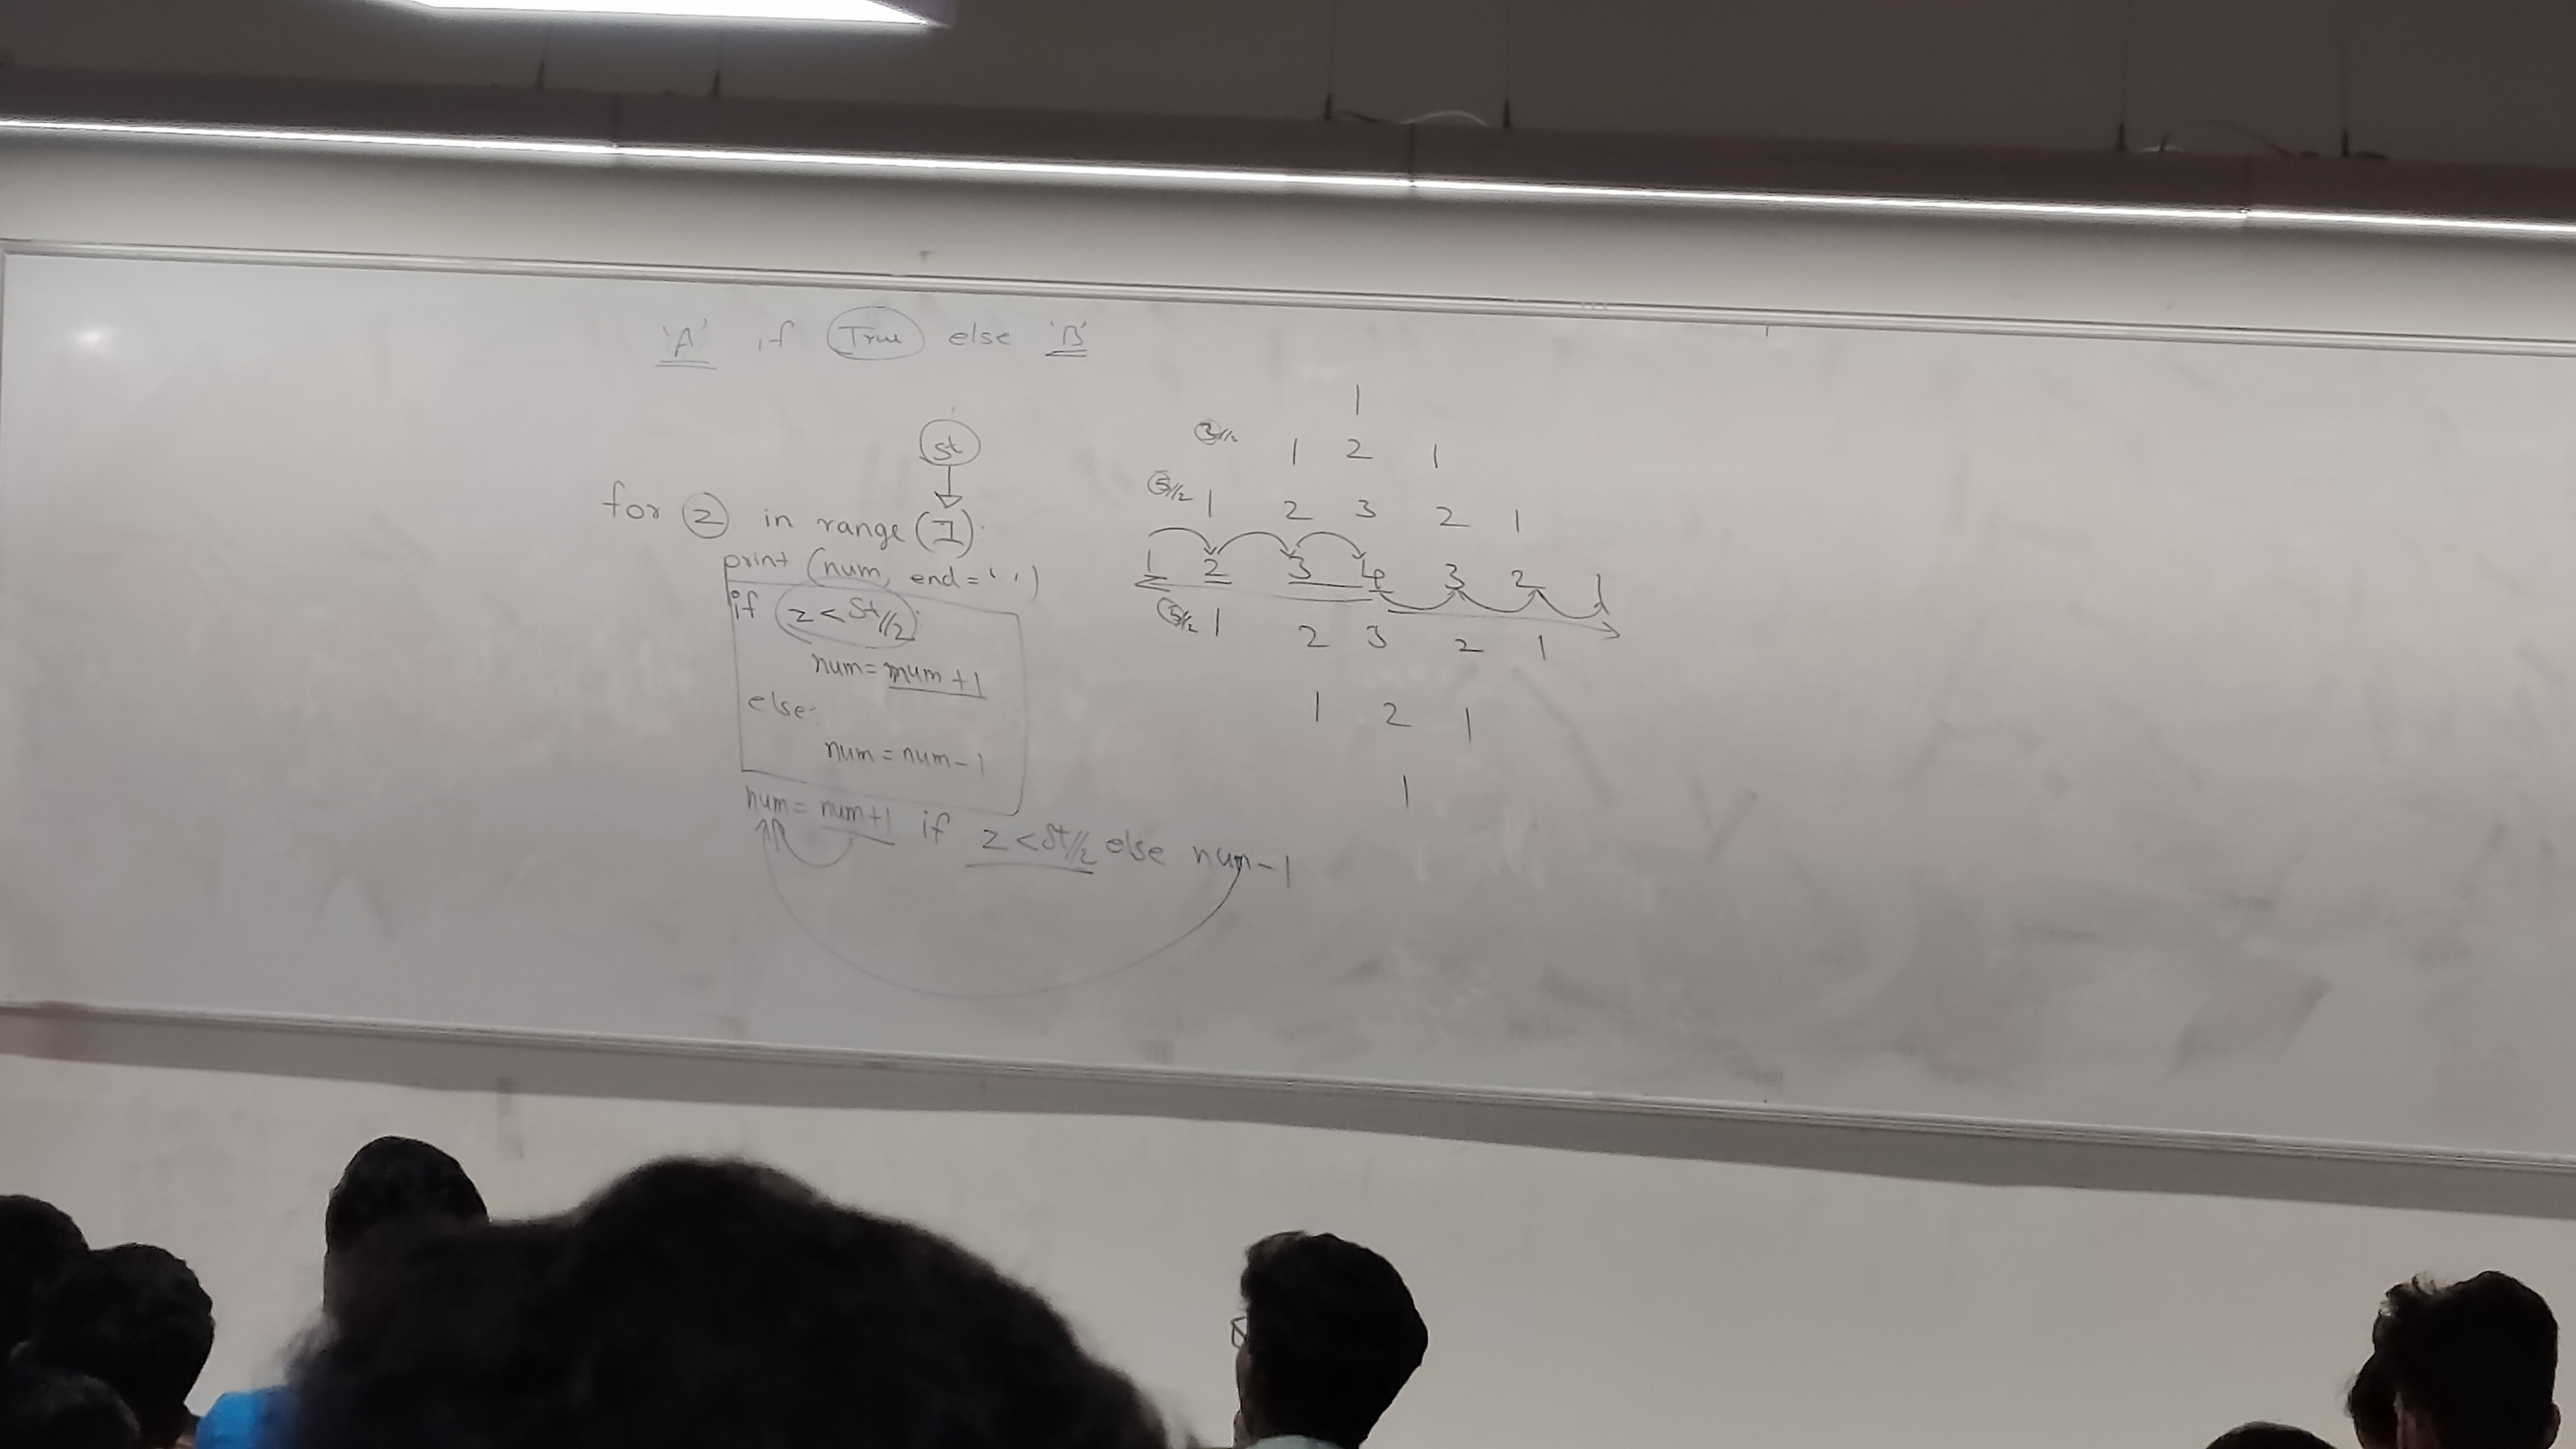 'A' if True else 'B'
st
for z in range (I):
print (num, end=' ')
if z < St//2:
num = num + 1
else:
num = num - 1
num = num+1 if z < St//2 else num - 1
1
3//2 1 2 1
5//2 1 2 3 2 1
1 2 3 4 3 2 1
5//2 1 2 3 2 1
1 2 1
1